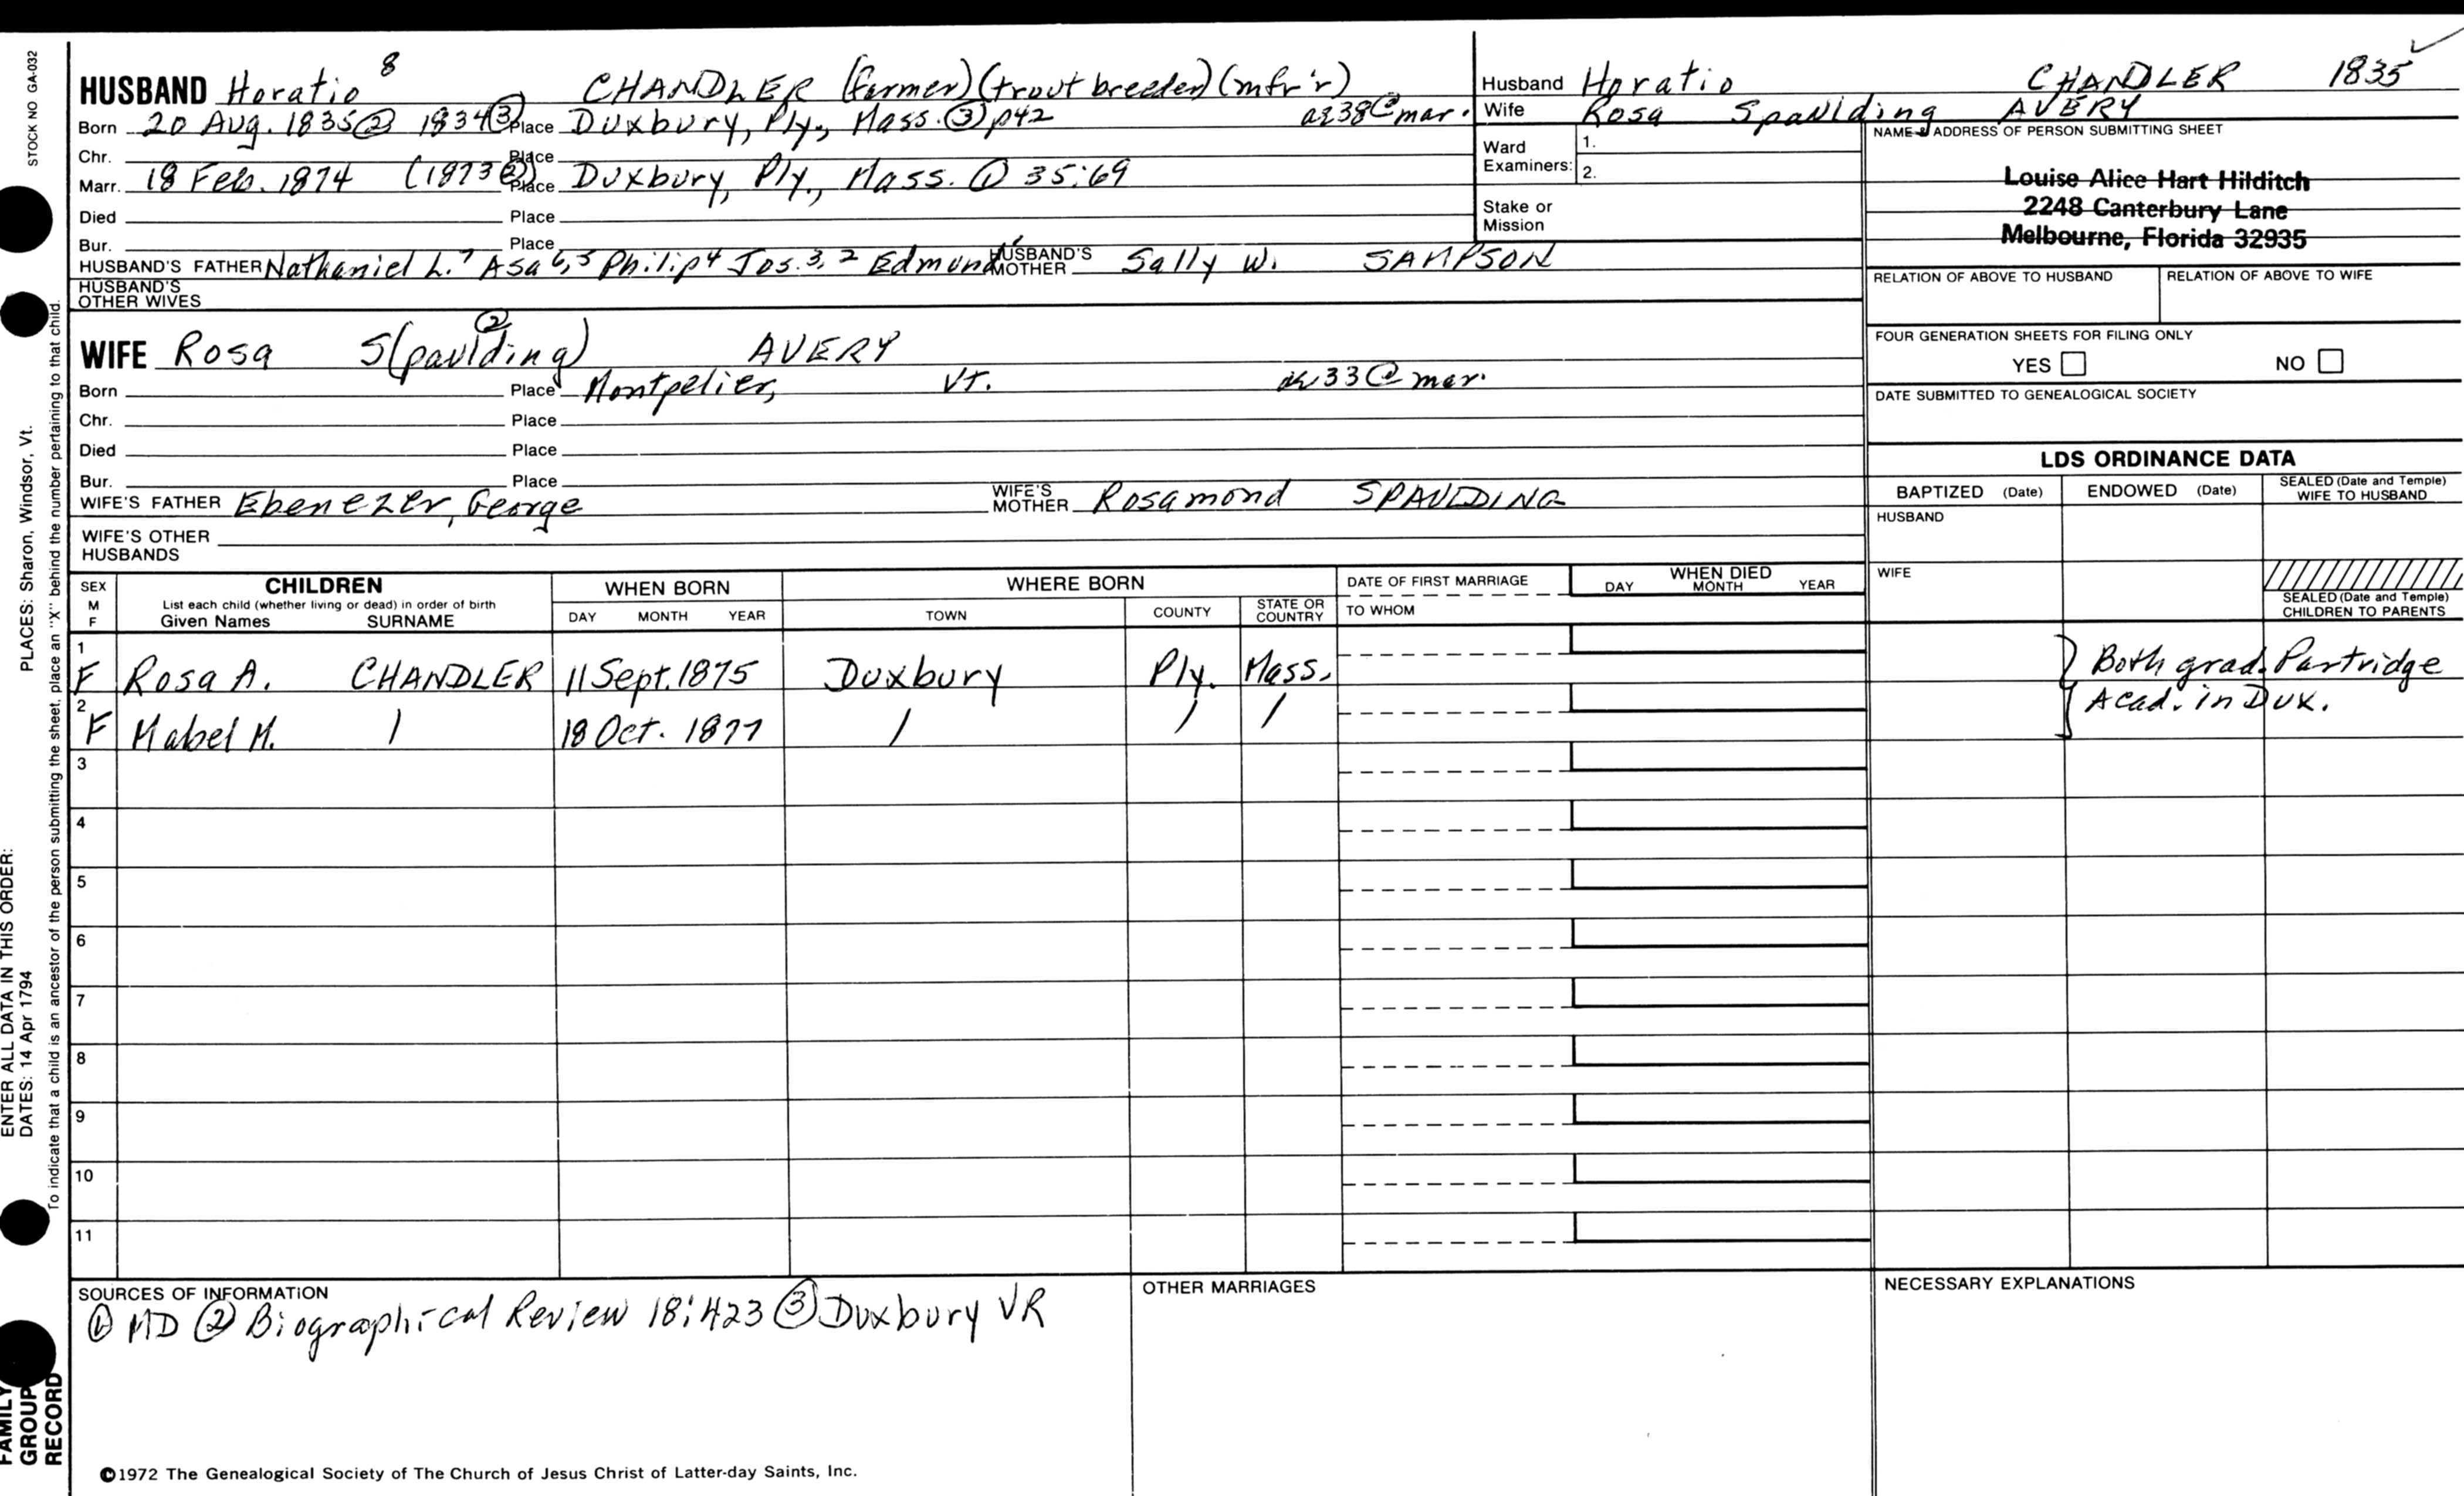 STOCK NO GA-032
PLACES: Sharon, Windsor, Vt.
ENTER ALL DATA IN THIS ORDER:
DATES: 14 Apr 1794
To indicate that a child is an ancestor of the person submitting the sheet, place an "X" behind the number pertaining to that child.
FAMILY GROUP RECORD
HUSBAND Horatio 8 CHANDLER (farmer) (trout breeder) (mfr'r)
Born 20 Aug. 1835② 1834③ Place Duxbury, Ply., Mass. ③ p42 ae38@mar.
Chr. Place
Marr. 18 Feb. 1874 (1873②) Place Duxbury, Ply., Mass. ① 35:69
Died Place
Bur. Place
HUSBAND'S FATHER Nathaniel L.7 Asa 6,5 Philip4 Jos. 3,2 Edmund1 HUSBAND'S MOTHER Sally W. SAMPSON
HUSBAND'S OTHER WIVES
WIFE Rosa S(paulding)② AVERY
Born Place Montpelier, Vt. 33@mar.
Chr. Place
Died Place
Bur. Place
WIFE'S FATHER Ebenezer, George WIFE'S MOTHER Rosamond SPAULDING
WIFE'S OTHER HUSBANDS
Husband Horatio CHANDLER 1835 ✓
Wife Rosa Spaulding AVERY
Ward Examiners: 1.
2.
Stake or Mission
NAME & ADDRESS OF PERSON SUBMITTING SHEET
Louise Alice Hart Hilditch
2248 Canterbury Lane
Melbourne, Florida 32935
RELATION OF ABOVE TO HUSBAND RELATION OF ABOVE TO WIFE
FOUR GENERATION SHEETS FOR FILING ONLY
YES NO
DATE SUBMITTED TO GENEALOGICAL SOCIETY
LDS ORDINANCE DATA
BAPTIZED (Date) ENDOWED (Date) SEALED (Date and Temple) WIFE TO HUSBAND
HUSBAND
WIFE
SEALED (Date and Temple) CHILDREN TO PARENTS
SEX M F CHILDREN List each child (whether living or dead) in order of birth Given Names SURNAME
WHEN BORN DAY MONTH YEAR
WHERE BORN TOWN COUNTY STATE OR COUNTRY
DATE OF FIRST MARRIAGE TO WHOM
WHEN DIED DAY MONTH YEAR
1 F Rosa A. CHANDLER 11 Sept. 1875 Duxbury Ply. Mass. Both grad. Partridge
2 F Mabel M. / 18 Oct. 1877 / / / Acad. in Dux.
3
4
5
6
7
8
9
10
11
SOURCES OF INFORMATION
① MD ② Biographical Review 18:423 ③ Duxbury VR
OTHER MARRIAGES
NECESSARY EXPLANATIONS
©1972 The Genealogical Society of The Church of Jesus Christ of Latter-day Saints, Inc.